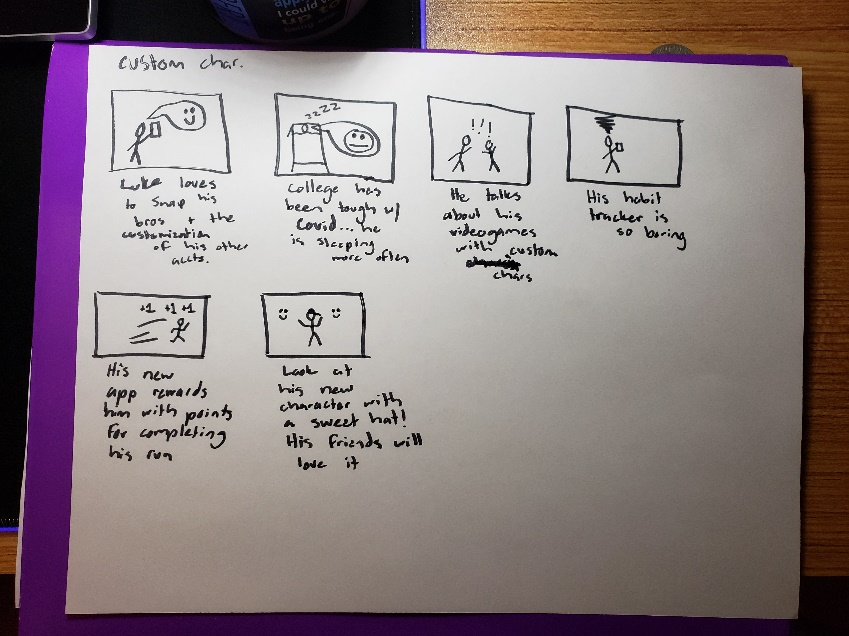 custom char.
Luke loves
to snap his
bros + the
customization
of his other
accts.
zzzz
College has
been tough w/
Covid... he
is sleeping
more often
!!!
He talks
about his
videogames
with custom
chars
His habit
tracker is
so boring
+1 +1 +1
His new
app rewards
him with points
for completing
his run
Look at
his new
character with
a sweet hat!
His friends will
love it
app
I could
up to